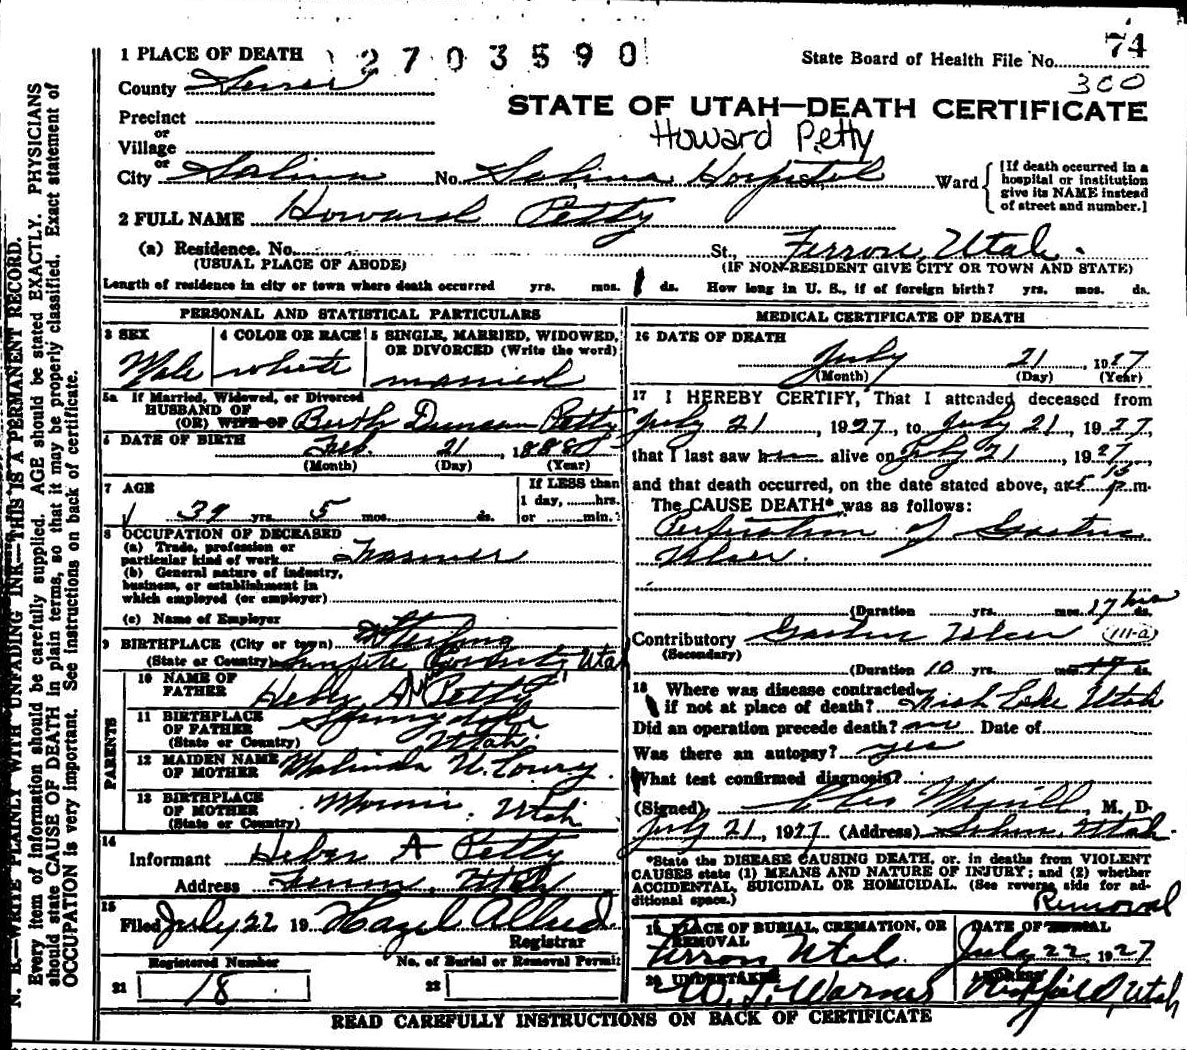 1 PLACE OF DEATH 2703590
State Board of Health File No. 74
300
County Sevier
STATE OF UTAH—DEATH CERTIFICATE
Howard Petty
Precinct
or
Village
or
City Salina No. Salina Hospital St., Ward
[If death occurred in a
hospital or institution
give its NAME instead
of street and number.]
2 FULL NAME Howard Petty
(a) Residence. No. St., Ferron, Utah.
(USUAL PLACE OF ABODE) (IF NON-RESIDENT GIVE CITY OR TOWN AND STATE)
Length of residence in city or town where death occurred yrs. mos. 1 ds. How long in U. S., if of foreign birth? yrs. mos. ds.
PERSONAL AND STATISTICAL PARTICULARS
3 SEX 4 COLOR OR RACE 5 SINGLE, MARRIED, WIDOWED,
OR DIVORCED (Write the word)
Male white married
5a If Married, Widowed, or Divorced
HUSBAND OF
(OR) WIFE OF Duncan Petty
6 DATE OF BIRTH Feb. 21, 1888
(Month) (Day) (Year)
7 AGE If LESS than
1 day, hrs.
39 yrs. 5 mos. ds. or min.
8 OCCUPATION OF DECEASED
(a) Trade, profession or
particular kind of work Farmer
(b) General nature of industry,
business, or establishment in
which employed (or employer)
(c) Name of Employer
9 BIRTHPLACE (City or town) Sterling
(State or Country) Sanpete County Utah
PARENTS
10 NAME OF
FATHER Heber A Petty
11 BIRTHPLACE
OF FATHER
(State or Country) Utah
12 MAIDEN NAME
OF MOTHER Malinda Lowry
13 BIRTHPLACE
OF MOTHER
(State or Country) Utah
14
Informant Heber A Petty
Address Ferron, Utah
15
Filed July 22 19 Hazel Allred
Registrar
Registered Number No. of Burial or Removal Permit
21 18 22
MEDICAL CERTIFICATE OF DEATH
16 DATE OF DEATH
July 21 1927
(Month) (Day) (Year)
17 I HEREBY CERTIFY, That I attended deceased from
July 21, 1927, to July 21, 1927,
that I last saw alive on July 21, 1927
and that death occurred, on the date stated above, at 5 15 p.m.
The CAUSE DEATH* was as follows:
Perforation of Gastric
Ulcer.
(Duration yrs. mos. 17 hrs ds.
Contributory Gastric Ulcer (111-a)
(Secondary)
(Duration 10 yrs. mos. ds.
18 Where was disease contracted
if not at place of death? Utah
Did an operation precede death? no Date of
Was there an autopsy? yes
What test confirmed diagnosis?
(Signed) M. D.
July 21, 1927 (Address) Salina, Utah.
*State the DISEASE CAUSING DEATH, or, in deaths from VIOLENT
CAUSES state (1) MEANS AND NATURE OF INJURY; and (2) whether
ACCIDENTAL, SUICIDAL OR HOMICIDAL. (See reverse side for ad-
ditional space.)
Removal
19 PLACE OF BURIAL, CREMATION, OR
REMOVAL DATE OF BURIAL
Ferron Utah. July 22, 1927
20 UNDERTAKER ADDRESS
Richfield, Utah
READ CAREFULLY INSTRUCTIONS ON BACK OF CERTIFICATE
N. B.—WRITE PLAINLY WITH UNFADING INK—THIS IS A PERMANENT RECORD.
Every item of information should be carefully supplied. AGE should be stated EXACTLY. PHYSICIANS
should state CAUSE OF DEATH in plain terms, so that it may be properly classified. Exact statement of
OCCUPATION is very important. See instructions on back of certificate.